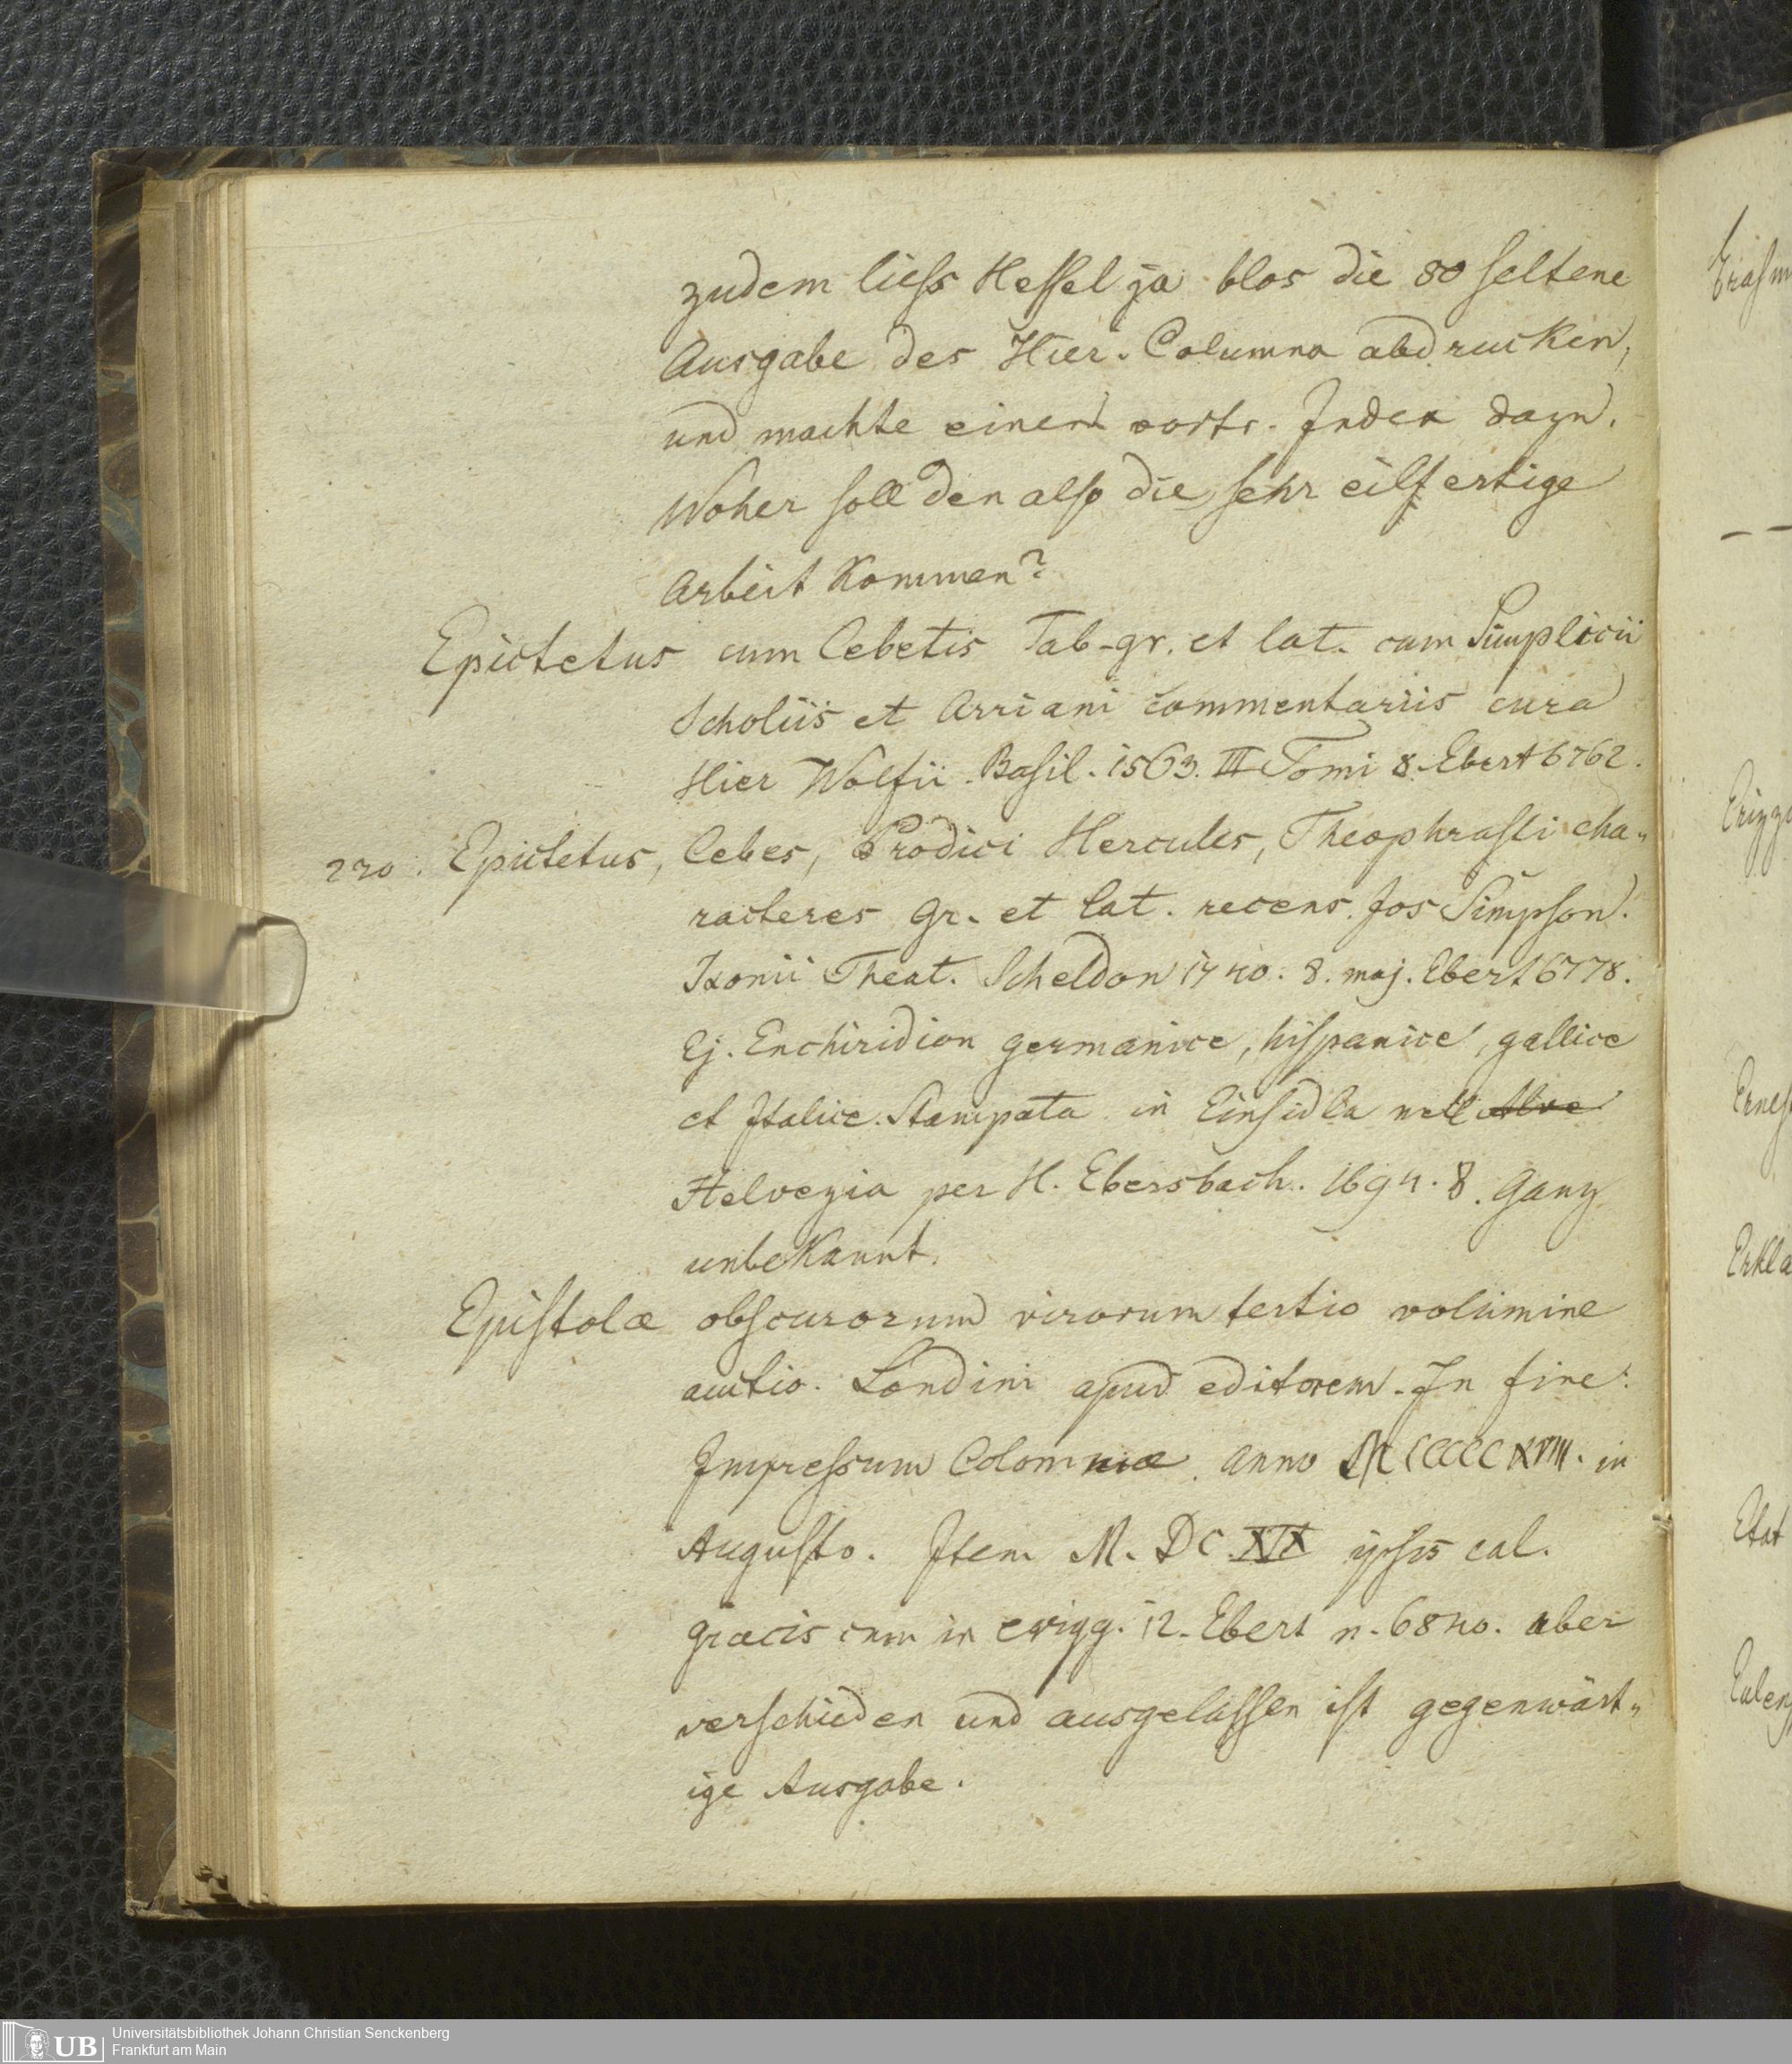 zudem liess Hessel ja blos die so seltene
Ausgabe des Hier. Columna abdrucken,
und machte einen vortr. Index dazu.
Woher soll den also die sehr eilfertige
Arbeit kommen?
Epictetus cum Cebetis Tab. gr. et lat. cum Simplicii
Scholiis et Arriani commentariis cura
Hier Wolfii. Basil. 1563. III Tomi 8. Ebert 6762.
220. Epictetus, Cebes, Prodici Hercules, Theophrasti cha„
racteres gr. et lat. recens. Jos Simpson.
Ixonii Theat. Scheldon 1740. 8. maj. Ebert 6778.
Ej. Enchiridion germanice, hispanice, gallice
et Italice. Stampata in Einsidla nell
Helvezia per H. Ebersbach. 1694. 8. ganz
unbekannt.
Epistolæ obscurorum virorum tertio volumine
auctio. Londini apud editorem. In fine:
Impressum Colom niæ. anno MCCCCCXVIII. in
Augusto. Item M. DC XIX ipsis cal.
græcis cum in 12. Ebert n. 6840. aber
verschieden und ausgelassen ist gegenwärt„
ige Ausgabe.
Erasm
Erizzo
Ernes
Erklä
Etat
Eulen
Universitätsbibliothek Johann Christian Senckenberg
Frankfurt am Main
UB